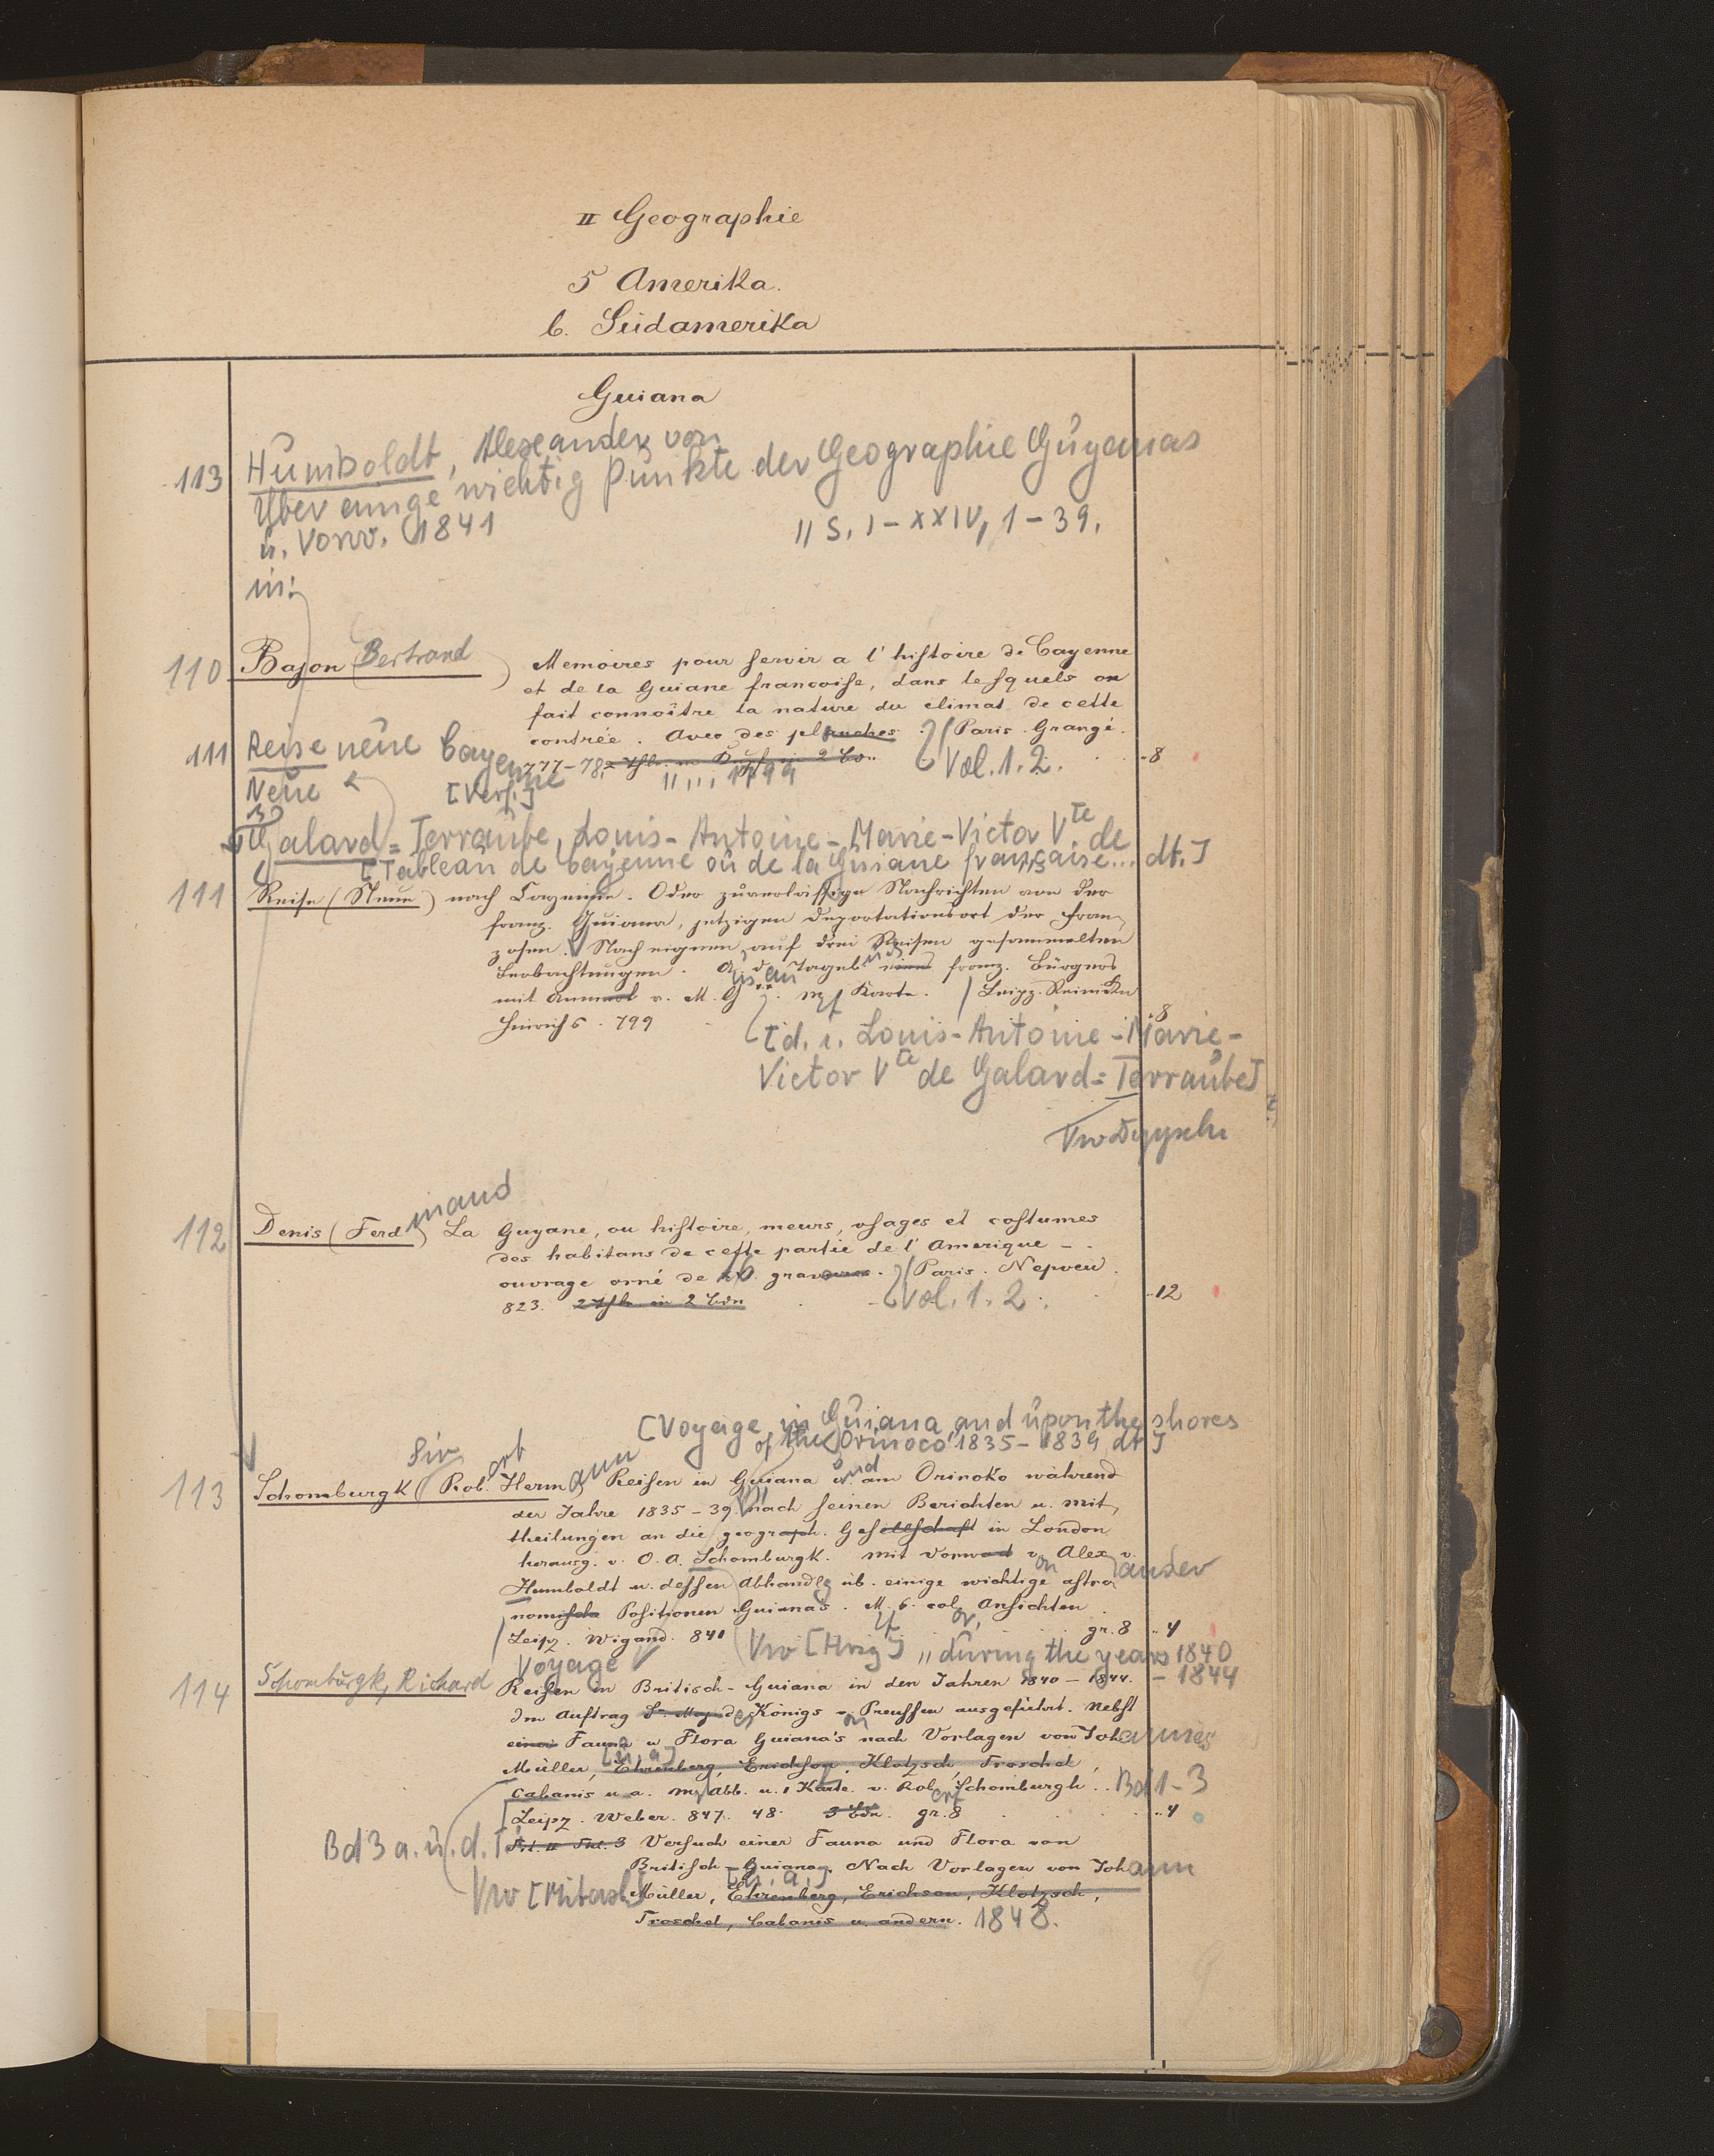 II Geographie
5 Amerika.
b. Südamerika
Guiana
113 Humboldt, Alexander von
Über einige wichtig Punkte der Geographie Guyanas
u. Vorw. 1841 II S. I-XXIV, 1-39.
in:
110 Bajon (Bertrand) Memoires pour servir a l' histoire de Cayenne
et de la Guiane francoise, dans lesquels on
fait connoître la nature du climat de cette
contrée. Avec des planches. Paris. Grangé.
777-78. in 2 Bdn. Vol. 1. 2. -8
111 Reise neue Cayenne
Neue [Verf.] 1799
Galard=Terraube, Louis-Antoine-Marie-Victor Vte de
[Tableau de Cayenne ou de la Guiane française... dt.]
111 Reise (Neue) nach Cayenne. Oder zuverlässige Nachrichten von der
franz. Guiana, jetzigen Deportationsort der Fran-
zosen. Nach eignen, auf drei Reisen gesammelten
Beobachtungen. A. d. Tageb. eines franz. Bürgers
mit Anmerk v. M. G. m Karte. Leipz. Reinicke
Hinrichs. 799 8
[d. i. Louis-Antoine-Marie-
Victor Vte de Galard=Terraube]
112 Denis (Ferdinand) La Guyane, ou histoire, meurs, usages et costumes
des habitans de cette partie de l' Amerique -
ouvrage orné de 16 gravures. Paris. Nepveu.
823. 2 Thle in 2 Bdn Vol. 1. 2. -12
[Voyage in Guiana and upon the shores
of the Orinoco 1835-1839, dt.]
113 Schomburgk (Sir Robert Hermann) Reisen in Guiana und am Orinoko während
der Jahre 1835-39 nach seinen Berichten u. Mit-
theilungen an die geograph. Gesellschaft in London
herausg. v. O. A. Schomburgk. Mit Vorwort von Alexander v.
Humboldt u. dessen Abhandlg üb. einige wichtige astro
nomische Positionen Guiana's. M. 6 col Ansichten
Leipz. Wigand. 841 gr. 8 4
Vw [Hrsg] " during the years 1840
-1844
114 Schomburgk, Richard Voyage
Reisen in Britisch-Guiana in den Jahren 1840-1844.
Im Auftrag Sr. Maj. des Königs von Preussen ausgeführt. Nebst
einer Fauna u Flora Guiana's nach Vorlagen von Johannes
Müller, [u. a.] Ehrenberg, Erichson, Klotzsch, Troschel,
Cabanis u a. m Abb. u. 1 Karte v. Robert Schomburgk. Bd 1-3
Leipz. Weber. 847. 48. 3 Bdn. gr. 8 4
Bd 3 a. u. d. T.: Versuch einer Fauna und Flora von
Britisch-Guiana. Nach Vorlagen von Johann
Vw [Mitarb.] Müller, [u. a.] Ehrenberg, Erichson, Klotzsch,
Troschel, Cabanis u. andern. 1848.